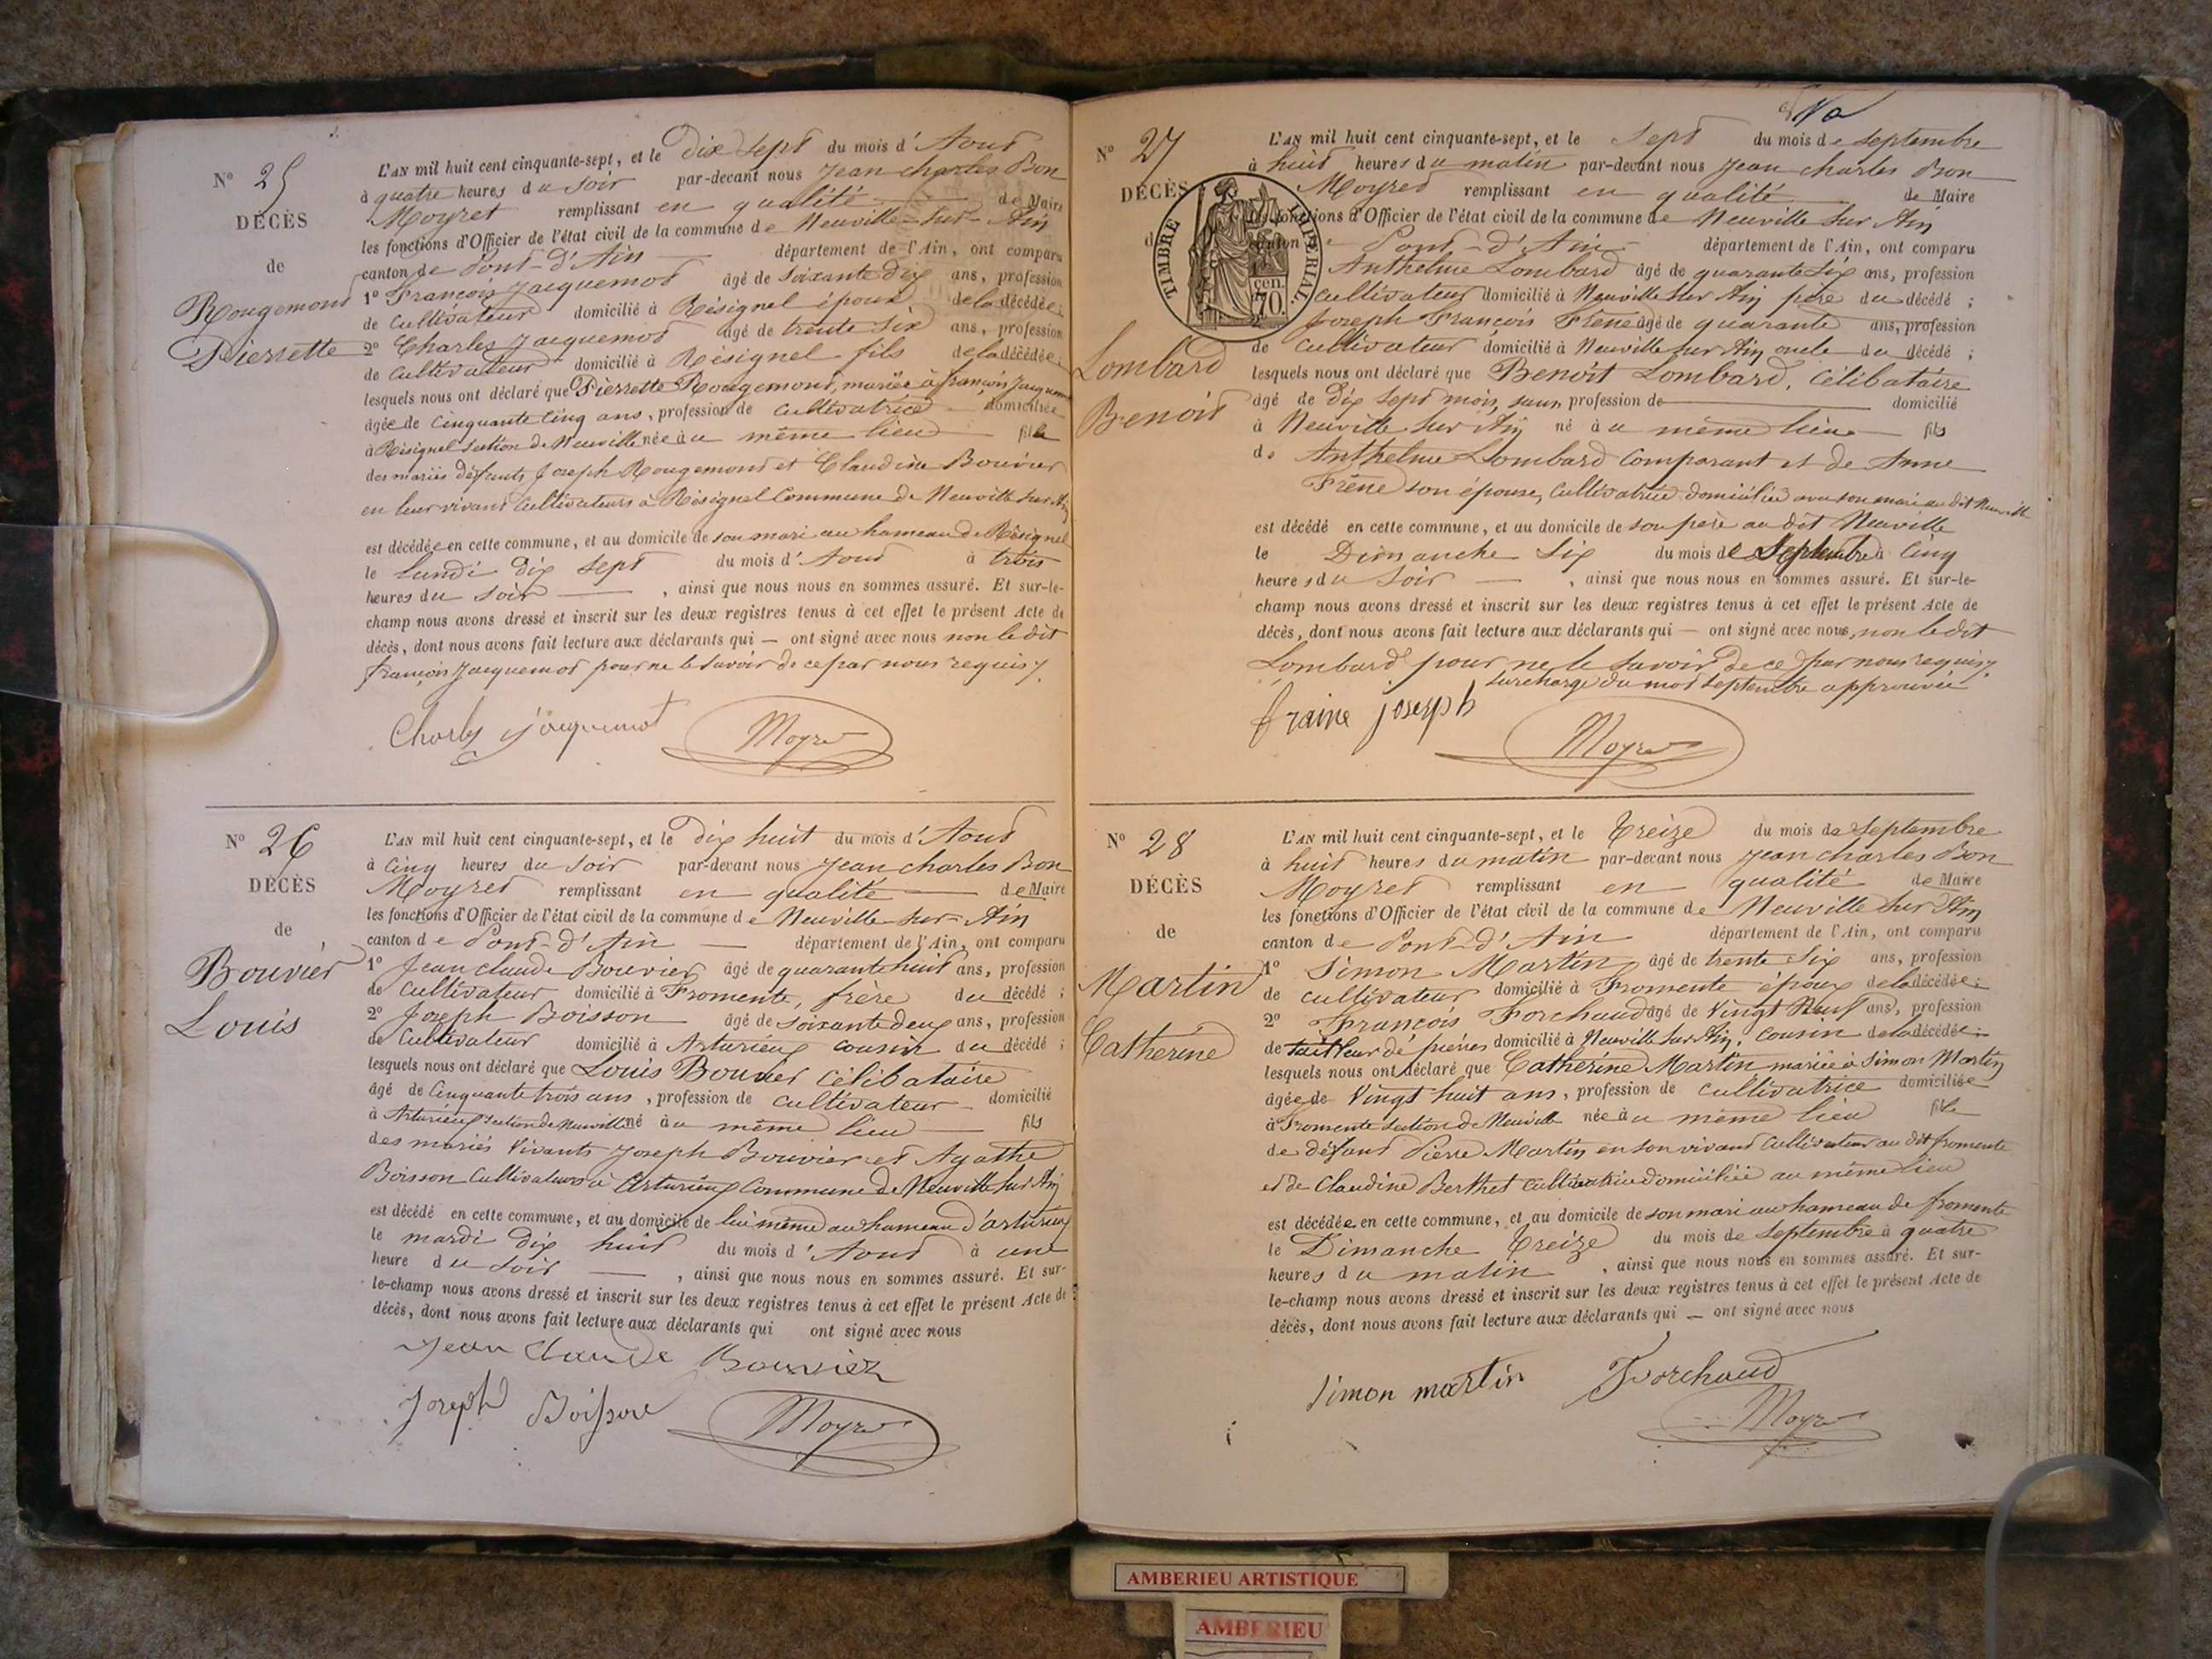 N° 25
DÉCÈS
de
Rougemond
Pierrette
L'AN mil huit cent cinquante-sept, et le Dix sept du mois d'Aout
à quatre heures du soir par-devant nous Jean charles Bon
Moyret remplissant en qualité de Maire
les fonctions d'Officier de l'état civil de la commune de Neuville-sur-Ain
canton de Pont-d'Ain département de l'Ain, ont comparu
1° François Jacquemod âgé de soixante dix ans, profession
de Cultivateur domicilié à Résignel époux de la décédée;
2° Charles Jacquemod âgé de trente six ans, profession
de Cultivateur domicilié à Résignel fils de la décédée;
lesquels nous ont déclaré que Pierrette Rougemont, mariée à françois Jacquemod
âgée de Cinquante cinq ans, profession de Cultivatrice domiciliée
à Résignel section de Neuville née au même lieu fille
des mariés défunts Joseph Rougemond et Claudine Bouvier
en leur vivant Cultivateurs à Résignel Commune de Neuville sur Ain
est décédée en cette commune, et au domicile de son mari au hameau de Résignel
le Lundi dix sept du mois d'Aout à trois
heures du soir , ainsi que nous nous en sommes assuré. Et sur-le-
champ nous avons dressé et inscrit sur les deux registres tenus à cet effet le présent Acte de
décès, dont nous avons fait lecture aux déclarants qui — ont signé avec nous non le dit
françois Jacquemod pour ne le savoir de ce par nous requis
Charles jacquemot Moyret
N° 26
DÉCÈS
de
Bouvier
Louis
L'AN mil huit cent cinquante-sept, et le dix huit du mois d'Aout
à Cinq heures du soir par-devant nous Jean charles Bon
Moyret remplissant en qualité de Maire
les fonctions d'Officier de l'état civil de la commune de Neuville-sur-Ain
canton de Pont-d'Ain département de l'Ain, ont comparu
1° Jean claude Bouvier âgé de quarante huit ans, profession
de Cultivateur domicilié à Fromente, frère du décédé;
2° Joseph Boisson âgé de soixante deux ans, profession
de Cultivateur domicilié à Arturieux cousin du décédé;
lesquels nous ont déclaré que Louis Bouvier Célibataire
âgé de Cinquante trois ans, profession de Cultivateur domicilié
à Arturieux section de Neuville né au même lieu fils
des mariés Vivants Joseph Bouvier et Agathe
Boisson Cultivateurs à Arturieux Commune de Neuville sur Ain
est décédé en cette commune, et au domicile de lui même au hameau d'arturieux
le mardi dix huit du mois d'Aout à une
heure du soir , ainsi que nous nous en sommes assuré. Et sur-
le-champ nous avons dressé et inscrit sur les deux registres tenus à cet effet le présent Acte de
décès, dont nous avons fait lecture aux déclarants qui ont signé avec nous
Jean Claude Bouvier
Joseph Boisson Moyret
N° 27
DÉCÈS
Lombard
Benoit
TIMBRE IMPÉRIAL.
70 cen.
L'AN mil huit cent cinquante-sept, et le Sept du mois de Septembre
à huit heures du matin par-devant nous Jean charles Bon
Moyret remplissant en qualité de Maire
les fonctions d'Officier de l'état civil de la commune de Neuville sur Ain
canton de Pont-d'Ain département de l'Ain, ont comparu
Anthelme Lombard âgé de quarante six ans, profession
Cultivateur domicilié à Neuville sur Ain père du décédé;
Joseph François Frêne âgé de quarante ans, profession
de Cultivateur domicilié à Neuville sur Ain oncle du décédé;
lesquels nous ont déclaré que Benoit Lombard, Célibataire
âgé de dix sept mois, sans profession de domicilié
à Neuville sur Ain né au même lieu fils
de Anthelme Lombard Comparant et de Anne
Frêne son épouse, Cultivatrice domiciliée avec son mari au dit Neuville
est décédé en cette commune, et au domicile de son père au dit Neuville
le Dimanche Six du mois de Septembre à Cinq
heures du Soir , ainsi que nous nous en sommes assuré. Et sur-le-
champ nous avons dressé et inscrit sur les deux registres tenus à cet effet le présent Acte de
décès, dont nous avons fait lecture aux déclarants qui — ont signé avec nous, non le dit
Lombard pour ne le savoir de ce par nous requis.
surcharge du mot septembre approuvée
fraine joserph Moyret
N° 28
DÉCÈS
de
Martin
Catherine
L'AN mil huit cent cinquante-sept, et le Treize du mois de Septembre
à huit heures du matin par-devant nous Jean charles Bon
Moyret remplissant en qualité de Maire
les fonctions d'Officier de l'état civil de la commune de Neuville sur Ain
canton de Pont-d'Ain département de l'Ain, ont comparu
1° Simon Martin âgé de trente Six ans, profession
de Cultivateur domicilié à Fromente époux de la décédée;
2° François Forchaud âgé de Vingt Neuf ans, profession
de tailleur de pierres domicilié à Neuville sur Ain, Cousin de la décédée;
lesquels nous ont déclaré que Catherine Martin mariée à Simon Martin
âgée de Vingt huit ans, profession de Cultivatrice domiciliée
à Fromente section de Neuville née au même lieu fille
de défunt Pierre Martin en son vivant Cultivateur au dit fromente
et de Claudine Berthet cultivatrice domiciliée au même lieu
est décédée en cette commune, et au domicile de son mari au hameau de fromente
le Dimanche Treize du mois de Septembre à quatre
heures du matin , ainsi que nous nous en sommes assuré. Et sur-
le-champ nous avons dressé et inscrit sur les deux registres tenus à cet effet le présent Acte de
décès, dont nous avons fait lecture aux déclarants qui — ont signé avec nous
Simon martin Forchaud
Moyret
AMBERIEU ARTISTIQUE
AMBERIEU